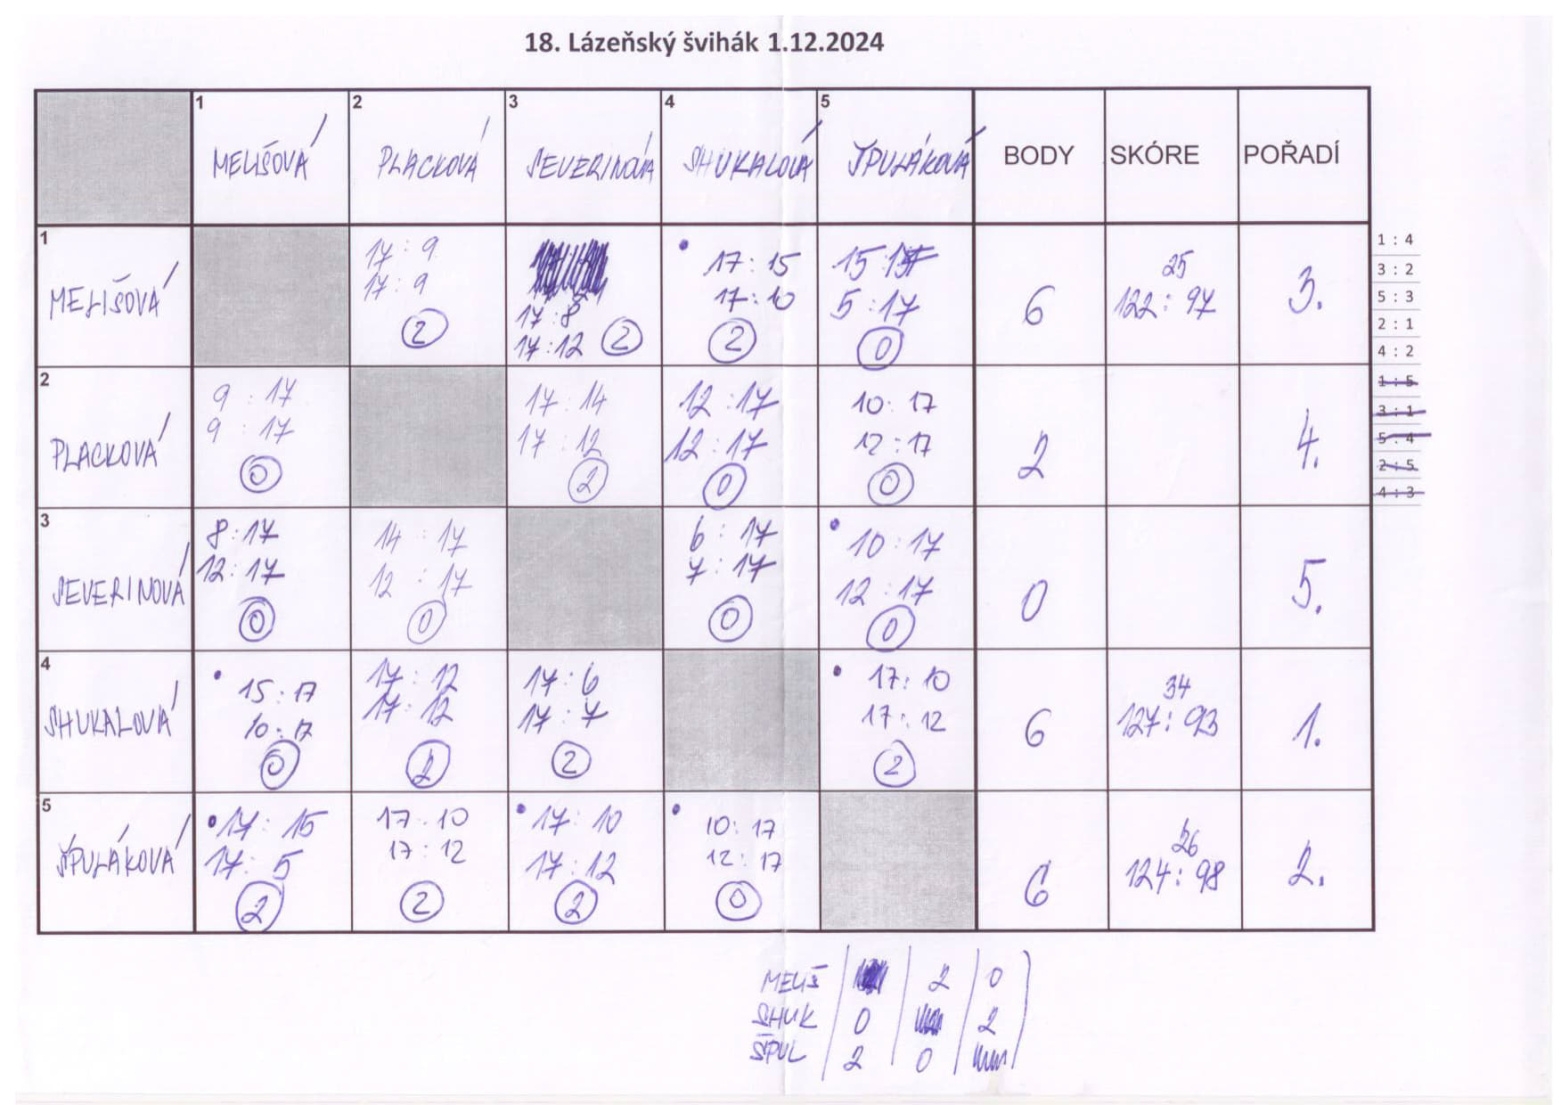 18. Lázeňský švihák 1.12.2024
1 2 3 4 5
MELIŠOVÁ PLACKOVÁ SEVERINOVÁ SHUKALOVÁ ŠPULÁKOVÁ BODY SKÓRE POŘADÍ
1
MELIŠOVÁ
17:9
17:9
2
17:8
17:12 2
17:15
17:10
2
15:17
5:17
0
6
25
122:97
3.
2
PLACKOVÁ
9:17
9:17
0
17:14
17:12
2
12:17
12:17
0
10:17
12:17
0
2
4.
3
SEVERINOVÁ
8:17
12:17
0
14:17
12:17
0
6:17
7:17
0
10:17
12:17
0
0
5.
4
SHUKALOVÁ
15:17
10:17
0
17:12
17:12
2
17:6
17:7
2
17:10
17:12
2
6
34
127:93
1.
5
ŠPULÁKOVÁ
17:15
17:5
2
17:10
17:12
2
17:10
17:12
2
10:17
12:17
0
6
26
124:98
2.
1 : 4
3 : 2
5 : 3
2 : 1
4 : 2
1 : 5
3 : 1
5 : 4
2 : 5
4 : 3
MELIŠ 2 0
SHUK 0 2
ŠPUL 2 0